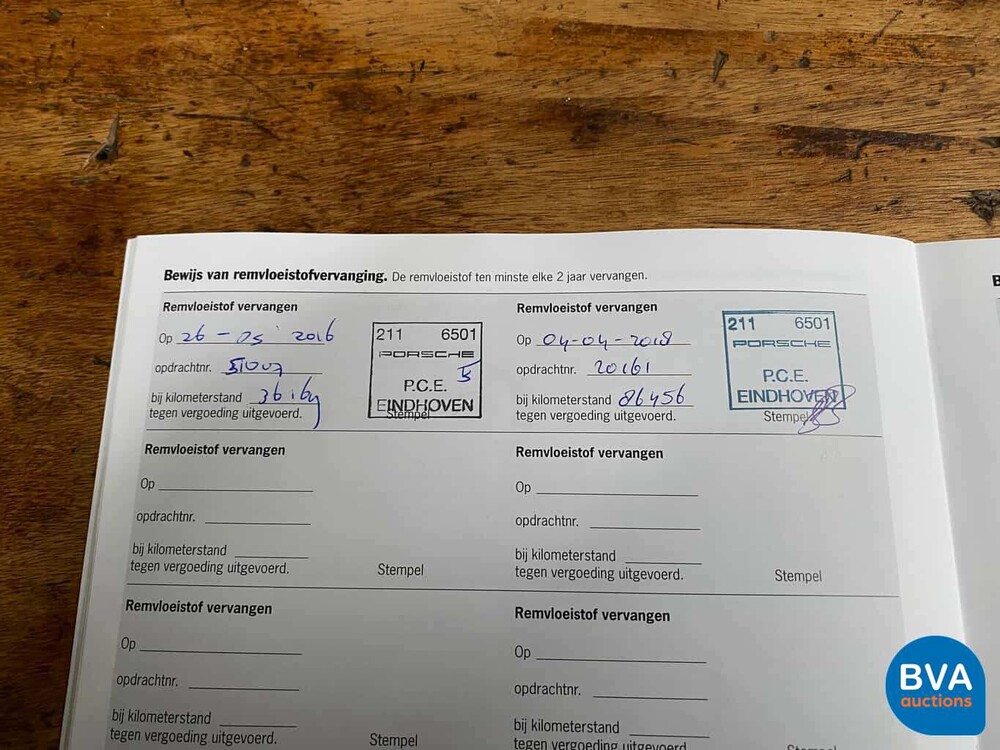 Bewijs van remvloeistofvervanging. De remvloeistof ten minste elke 2 jaar vervangen.
Remvloeistof vervangen
Op 26-05 2016
opdrachtnr.
bij kilometerstand
tegen vergoeding uitgevoerd.
211 6501
PORSCHE
P.C.E.
EINDHOVEN
Stempel
Remvloeistof vervangen
Op 04-04-2018
opdrachtnr. 20161
bij kilometerstand 86456
tegen vergoeding uitgevoerd.
211 6501
PORSCHE
P.C.E.
EINDHOVEN
Stempel
Remvloeistof vervangen
Op
opdrachtnr.
bij kilometerstand
tegen vergoeding uitgevoerd.
Stempel
Remvloeistof vervangen
Op
opdrachtnr.
bij kilometerstand
tegen vergoeding uitgevoerd.
Stempel
Remvloeistof vervangen
Op
opdrachtnr.
bij kilometerstand
tegen vergoeding uitgevoerd.
Stempel
Remvloeistof vervangen
Op
opdrachtnr.
bij kilometerstand
tegen vergoeding uitgevoerd.
Stempel
B
BVA
auctions